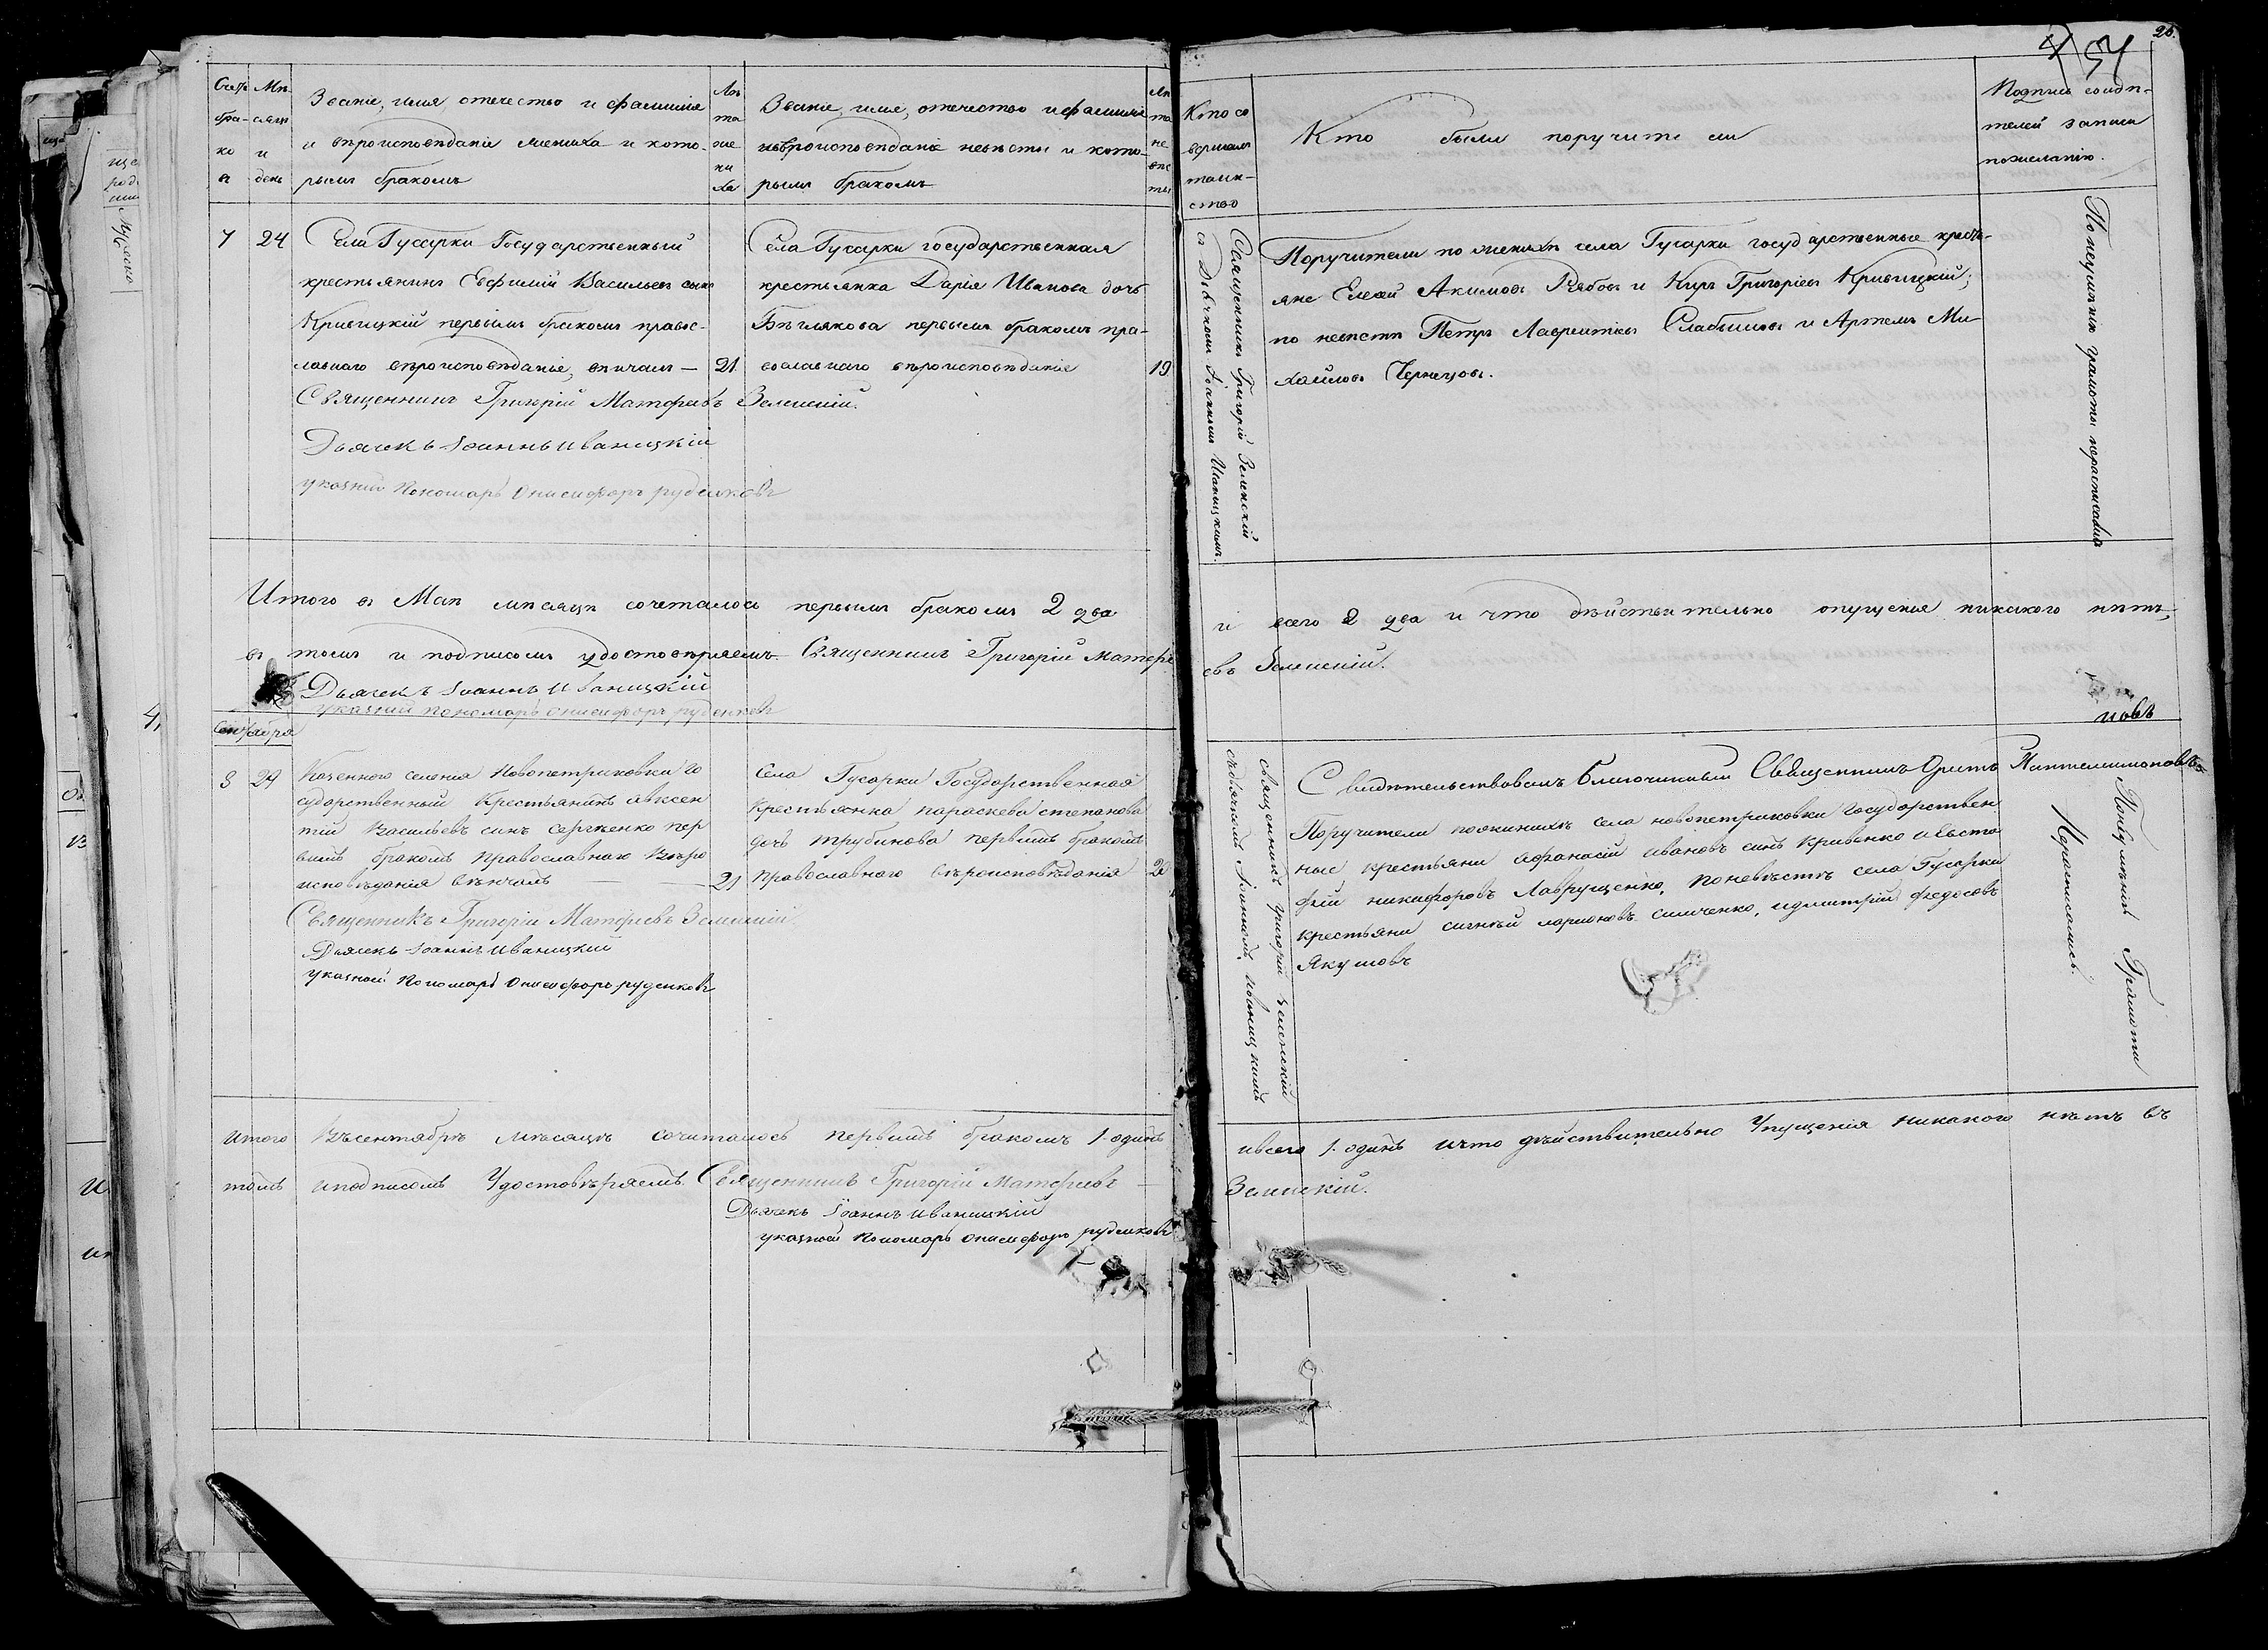 26.
Счетъ бра-ко въ
Мѣ-сяцъ и день
Званіе, имя отечество и фамилія
и вѣроисповѣданіе жениха и кото-
рымъ бракомъ
Лѣ та же ни ха
Званіе, имя, отечество и фамилія
и вѣроисповѣданіе невѣсты и кото-
рымъ бракомъ
Лѣ та не вѣс ты
Кто со вершалъ таин-ство
Кто были поручители
Подпись свидѣ-
телей записи
по желанію.
7 24
Села Гусарки Государственный
крестьянинъ Евфимій Васильевъ сынъ
Кривицкій первымъ бракомъ правос-
лавнаго вѣроисповѣданія, вѣнчалъ — 21
Священникъ Григорій Матфеевъ Зелинскій.
Дьячекъ Іоаннъ Иваницкій
указный Пономарь Онисифоръ руденковъ
Села Гусарки государственная
крестьянка Дарія Иванова дочь
Бѣглякова первымъ бракомъ пра-
вославнаго вѣроисповѣданія 19
Священникъ Григорій Зеленскій
съ Дьячкомъ Іоанномъ Иваницкимъ.
Поручители по женихѣ села Гусарки государственные кресть-
яне Елесей Акимовъ Рябовъ и Киръ Григоріевъ Кривицкій;
по невѣстѣ Петръ Лаврентіевъ Слабышовъ и Артемъ Ми-
хайловъ Чернецовъ.
По неумѣнію грамоты нерасписались
Итого въ Маѣ мѣсяцѣ сочеталось первымъ бракомъ 2 два и всего 2 два и что дѣйствительно опущенія никакого нѣтъ,
въ томъ и подписомъ удостовѣряемъ. Священникъ Григорій Матфеевъ Зелинскій.
Дьячекъ Іоаннъ Иваницкій
указный пономарь онисифоръ руденковъ
Сентября
8 29
Казенного селенія Новопетриковки го
сударственный Крестьянинъ авксен
тій Васильевъ синъ Сергѣенко пер
вымъ бракомъ Православнаго Вѣро
исповѣданія вѣнчалъ — 21
Священникъ Григорій Матфеевъ Зелинскій
Дьячекъ Іоаннъ Иваницкій
указный Пономарь Онисифоръ руденковъ
Села Гусарки Государственная
Крестьянка параскева степанова
дочь трубинова первымъ бракомъ
Православнаго вѣроисповѣданія 20
священникъ григорій Зеленскій
съдьячкомъ Іоанномъ Иваницкимъ
Свидѣтельствовалъ Благочинный Священникъ Орестъ Пантелеимоновъ
новъ
Поручители пожинихѣ села новопетриковки Государствен
ные крестьяни афанасій ивановъ синъ Кривенко
фій никифоровъ Лаврущенко, поневѣстѣ села Гусарки
крестьяни ларіоновъ Симченко, идмитрій федосовъ
Якушовъ
Понеумѣнію Грамоти
Нерасписались
итого Въсентябрѣ мѣсяцѣ сочиталось первымъ бракомъ 1. одинъ ивсего 1. одинъ ичто дѣйствительно Упущенія никакого нѣтъ въ
томъ иподписомъ Удостовѣряемъ. Священникъ Григорій Матфеевъ Зелинскій.
Дьячекъ Іоаннъ Иваницкій
указный Пономарь Онисифоръ руденковъ